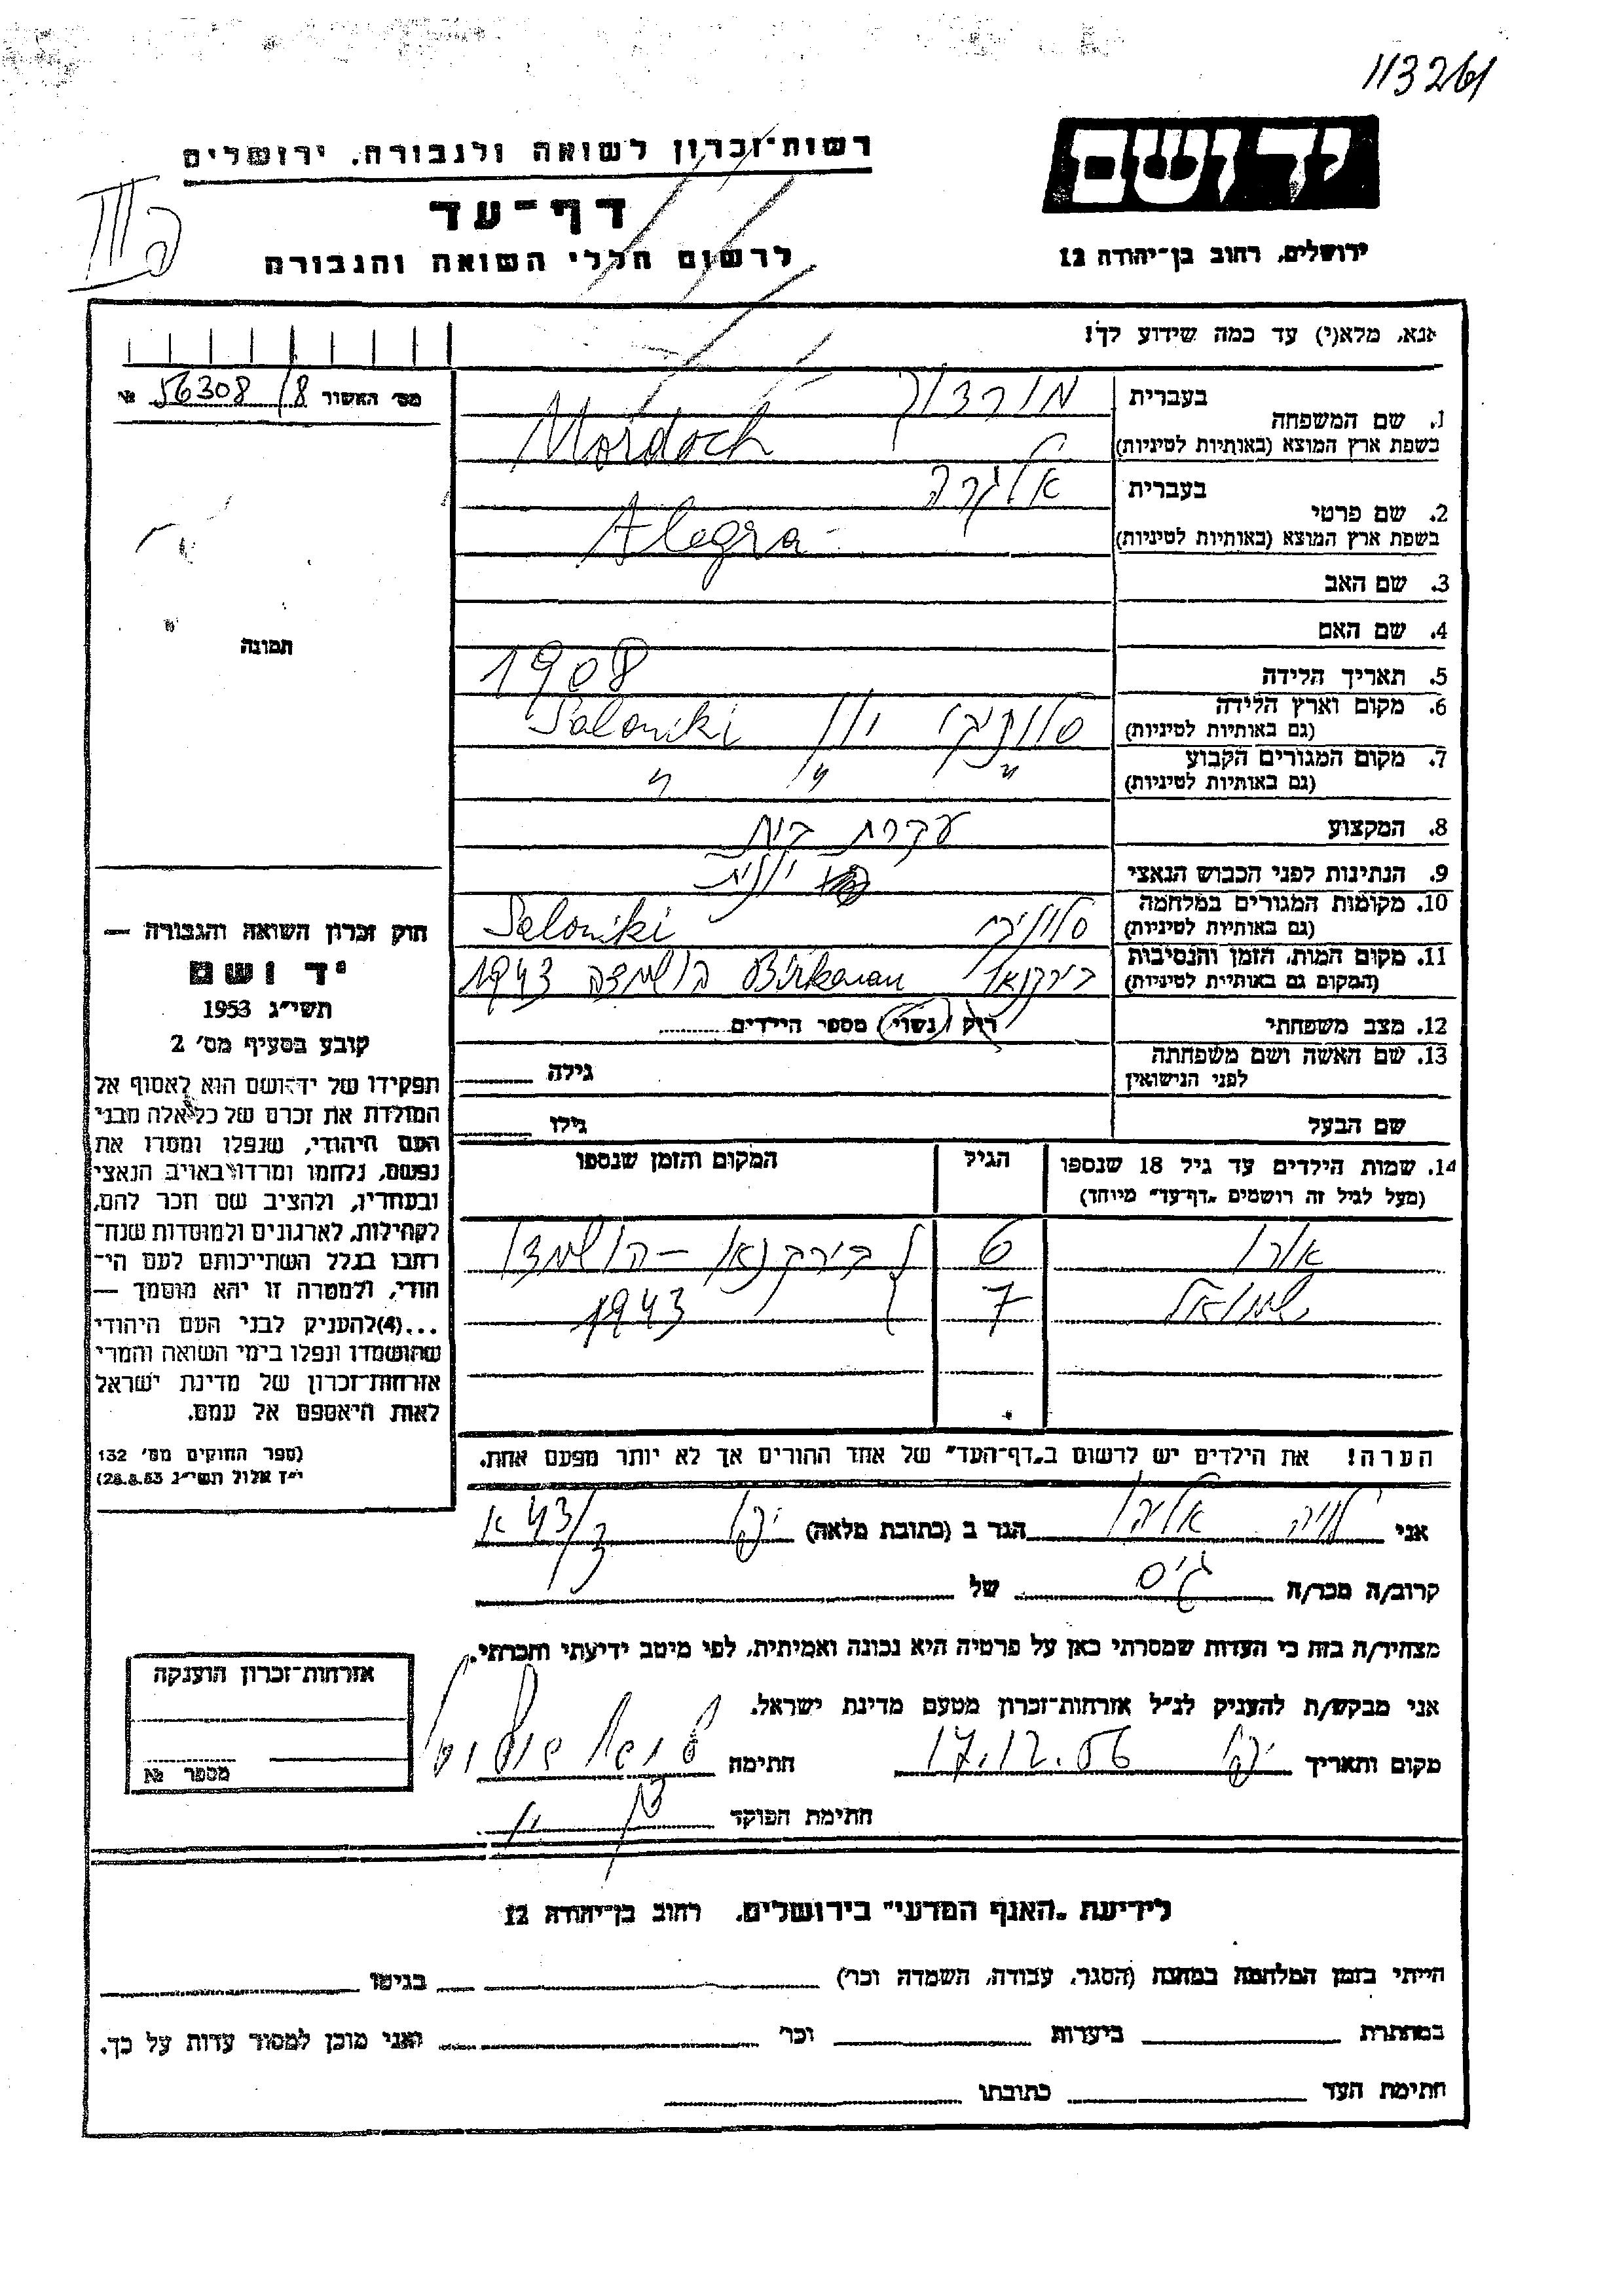 113261
יד ושם
ירושלים, רחוב בן־יהודה 12
רשות־זכרון לשואה ולגבורה, ירושלים
דף־עד
לרשום חללי השואה והגבורה
אנא, מלא(י) עד כמה שידוע לך!
מס׳ האשור 56308/8 №
תמונה
1. שם המשפחה בעברית מורדוך
בשפת ארץ המוצא (באותיות לטיניות) Mordoch
2. שם פרטי בעברית אלגרה
בשפת ארץ המוצא (באותיות לטיניות) Alegra
3. שם האב
4. שם האם
5. תאריך הלידה 1908
6. מקום וארץ הלידה סלוניקי יוון Saloniki
(גם באותיות לטיניות)
7. מקום המגורים הקבוע " " "
(גם באותיות לטיניות)
8. המקצוע עקרת בית
9. הנתינות לפני הכבוש הנאצי יוונית
10. מקומות המגורים במלחמה סלוניקי Saloniki
(גם באותיות לטיניות)
11. מקום המות, הזמן והנסיבות בירקנאו Birkenau הושמדה 1943
(המקום גם באותיות לטיניות)
12. מצב משפחתי רוק / נשוי / מספר הילדים
13. שם האשה ושם משפחתה גילה
לפני הנישואין
שם הבעל גילו
14. שמות הילדים עד גיל 18 שנספו הגיל המקום והזמן שנספו
(מעל לגיל זה רושמים „דף־עד״ מיוחד)
6 בירקנאו - הושמדו
שמואל 7 1943
הערה! את הילדים יש לרשום ב„דף־העד״ של אחד ההורים אך לא יותר מפעם אחת.
חוק זכרון השואה והגבורה —
יד ושם
תשי״ג 1953
קובע בסעיף מס׳ 2
תפקידו של יד־ושם הוא לאסוף אל
המולדת את זכרם של כל אלה מבני
העם היהודי, שנפלו ומסרו את
נפשם, נלחמו ומרדו באויב הנאצי
ובעוזריו, ולהציב שם וזכר להם,
לקהילות, לארגונים ולמוסדות שנח־
רבו בגלל השתייכותם לעם הי־
הודי, ולמטרה זו יהא מוסמך —
...(4) להעניק לבני העם היהודי
שהושמדו ונפלו בימי השואה והמרי
אזרחות־זכרון של מדינת ישראל
לאות היאספם אל עמם.
(ספר החוקים מס׳ 132
י״ז אלול תשי״ג 28.8.53)
אני אליהו הגר ב (כתובת מלאה) יפו
קרוב/ה מכר/ה גיס של
מצהיר/ה בזה כי העדות שמסרתי כאן על פרטיה היא נכונה ואמיתית, לפי מיטב ידיעתי והכרתי.
אני מבקש/ת להעניק לנ״ל אזרחות־זכרון מטעם מדינת ישראל.
מקום ותאריך יפו 17.12.56 חתימה
חתימת הפוקד
אזרחות־זכרון הוענקה
מספר №
לידיעת „האגף המדעי״ בירושלים, רחוב בן־יהודה 12
הייתי בזמן המלחמה במחנה (הסגר, עבודה, השמדה וכו׳) בגיטו
במחתרת ביערות וכו׳ ואני מוכן למסור עדות על כך.
חתימת העד כתובתו